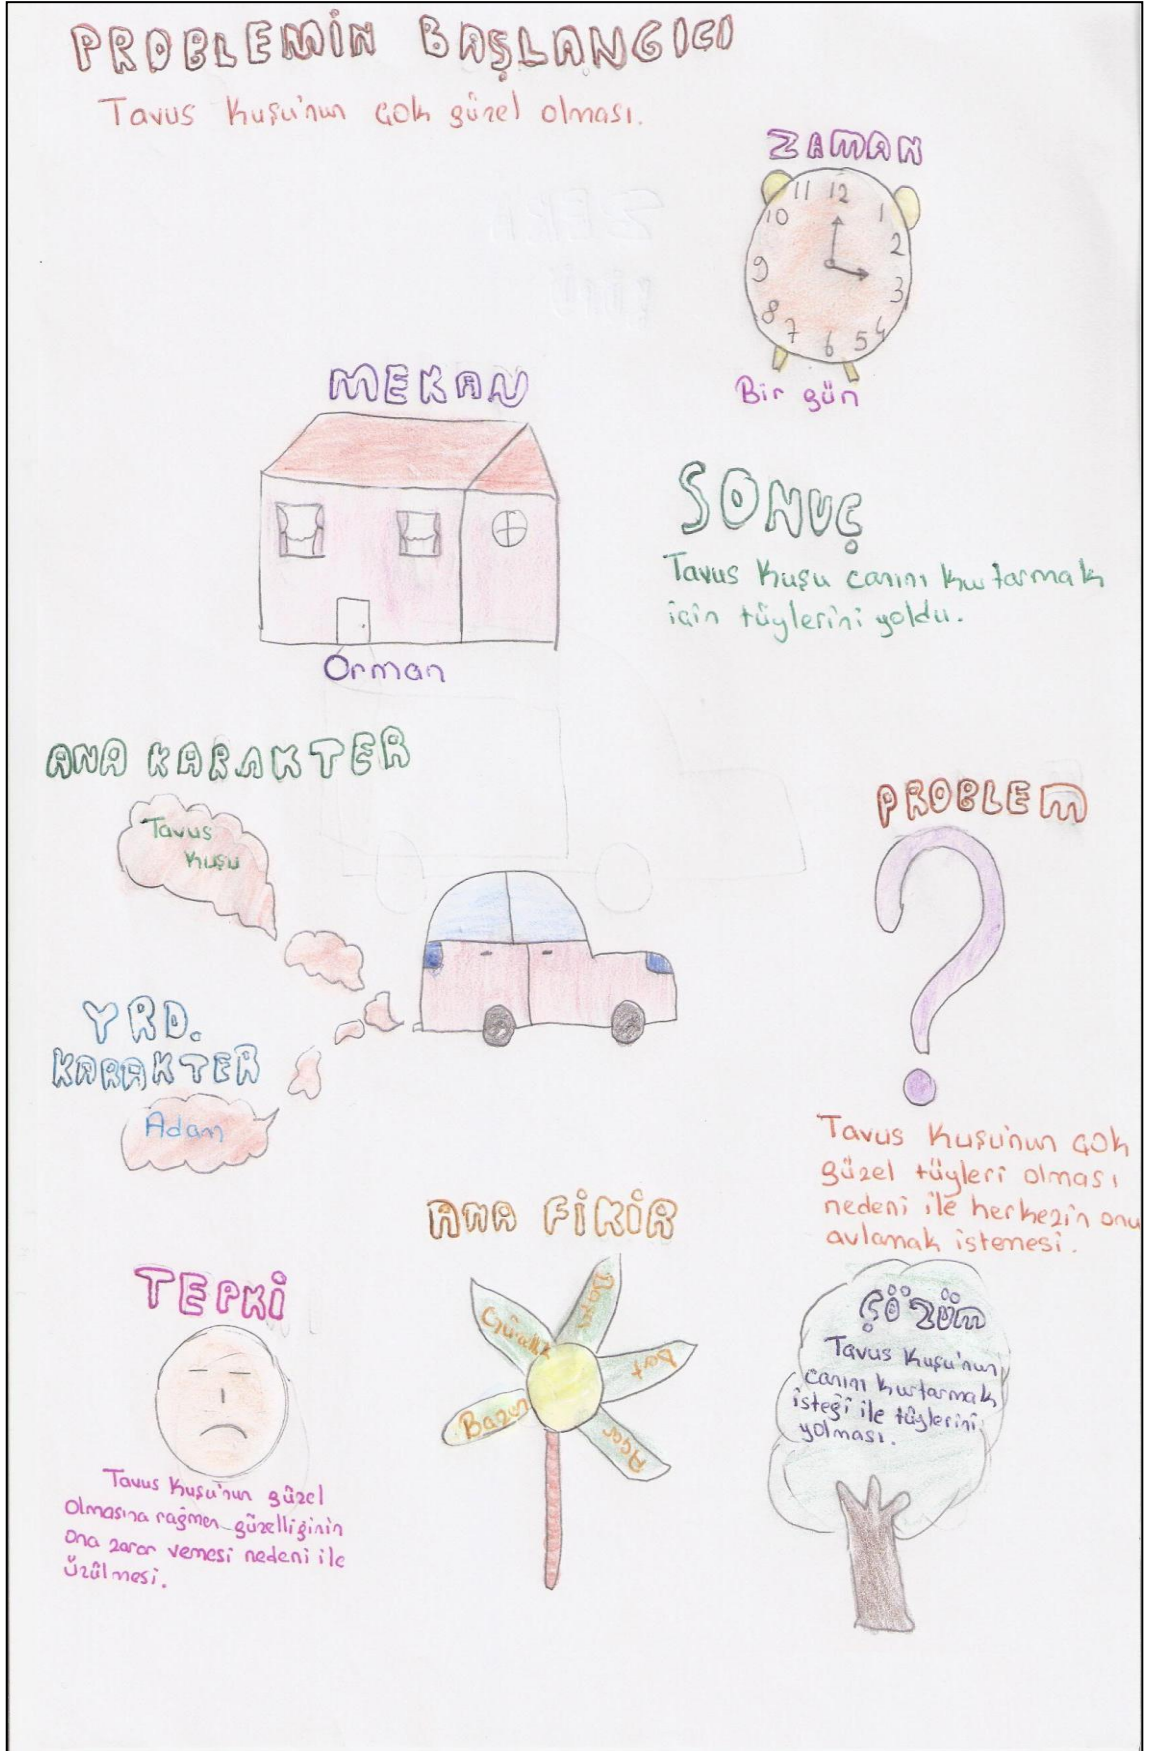 PROBLEMİN BAŞLANGICI
Tavus Kuşu'nun çok güzel olması.
ZAMAN
11 12 1
10 2
9 3
8 4
7 6 5
Bir gün
MEKAN
Orman
SONUÇ
Tavus Kuşu canını kurtarmak
için tüylerini yoldu.
ANA KARAKTER
Tavus
Kuşu
YRD.
KARAKTER
Adam
PROBLEM
?
Tavus Kuşu'nun çok
güzel tüyleri olması
nedeni ile herkezin onu
avlamak istemesi.
ANA FİKİR
Bazen
Güzellik
Başa
Dert
Açar
TEPKİ
Tavus Kuşu'nun güzel
olmasına rağmen güzelliğinin
ona zarar vemesi nedeni ile
üzülmesi.
ÇÖZÜM
Tavus Kuşu'nun
canını kurtarmak
isteği ile tüylerini
yolması.